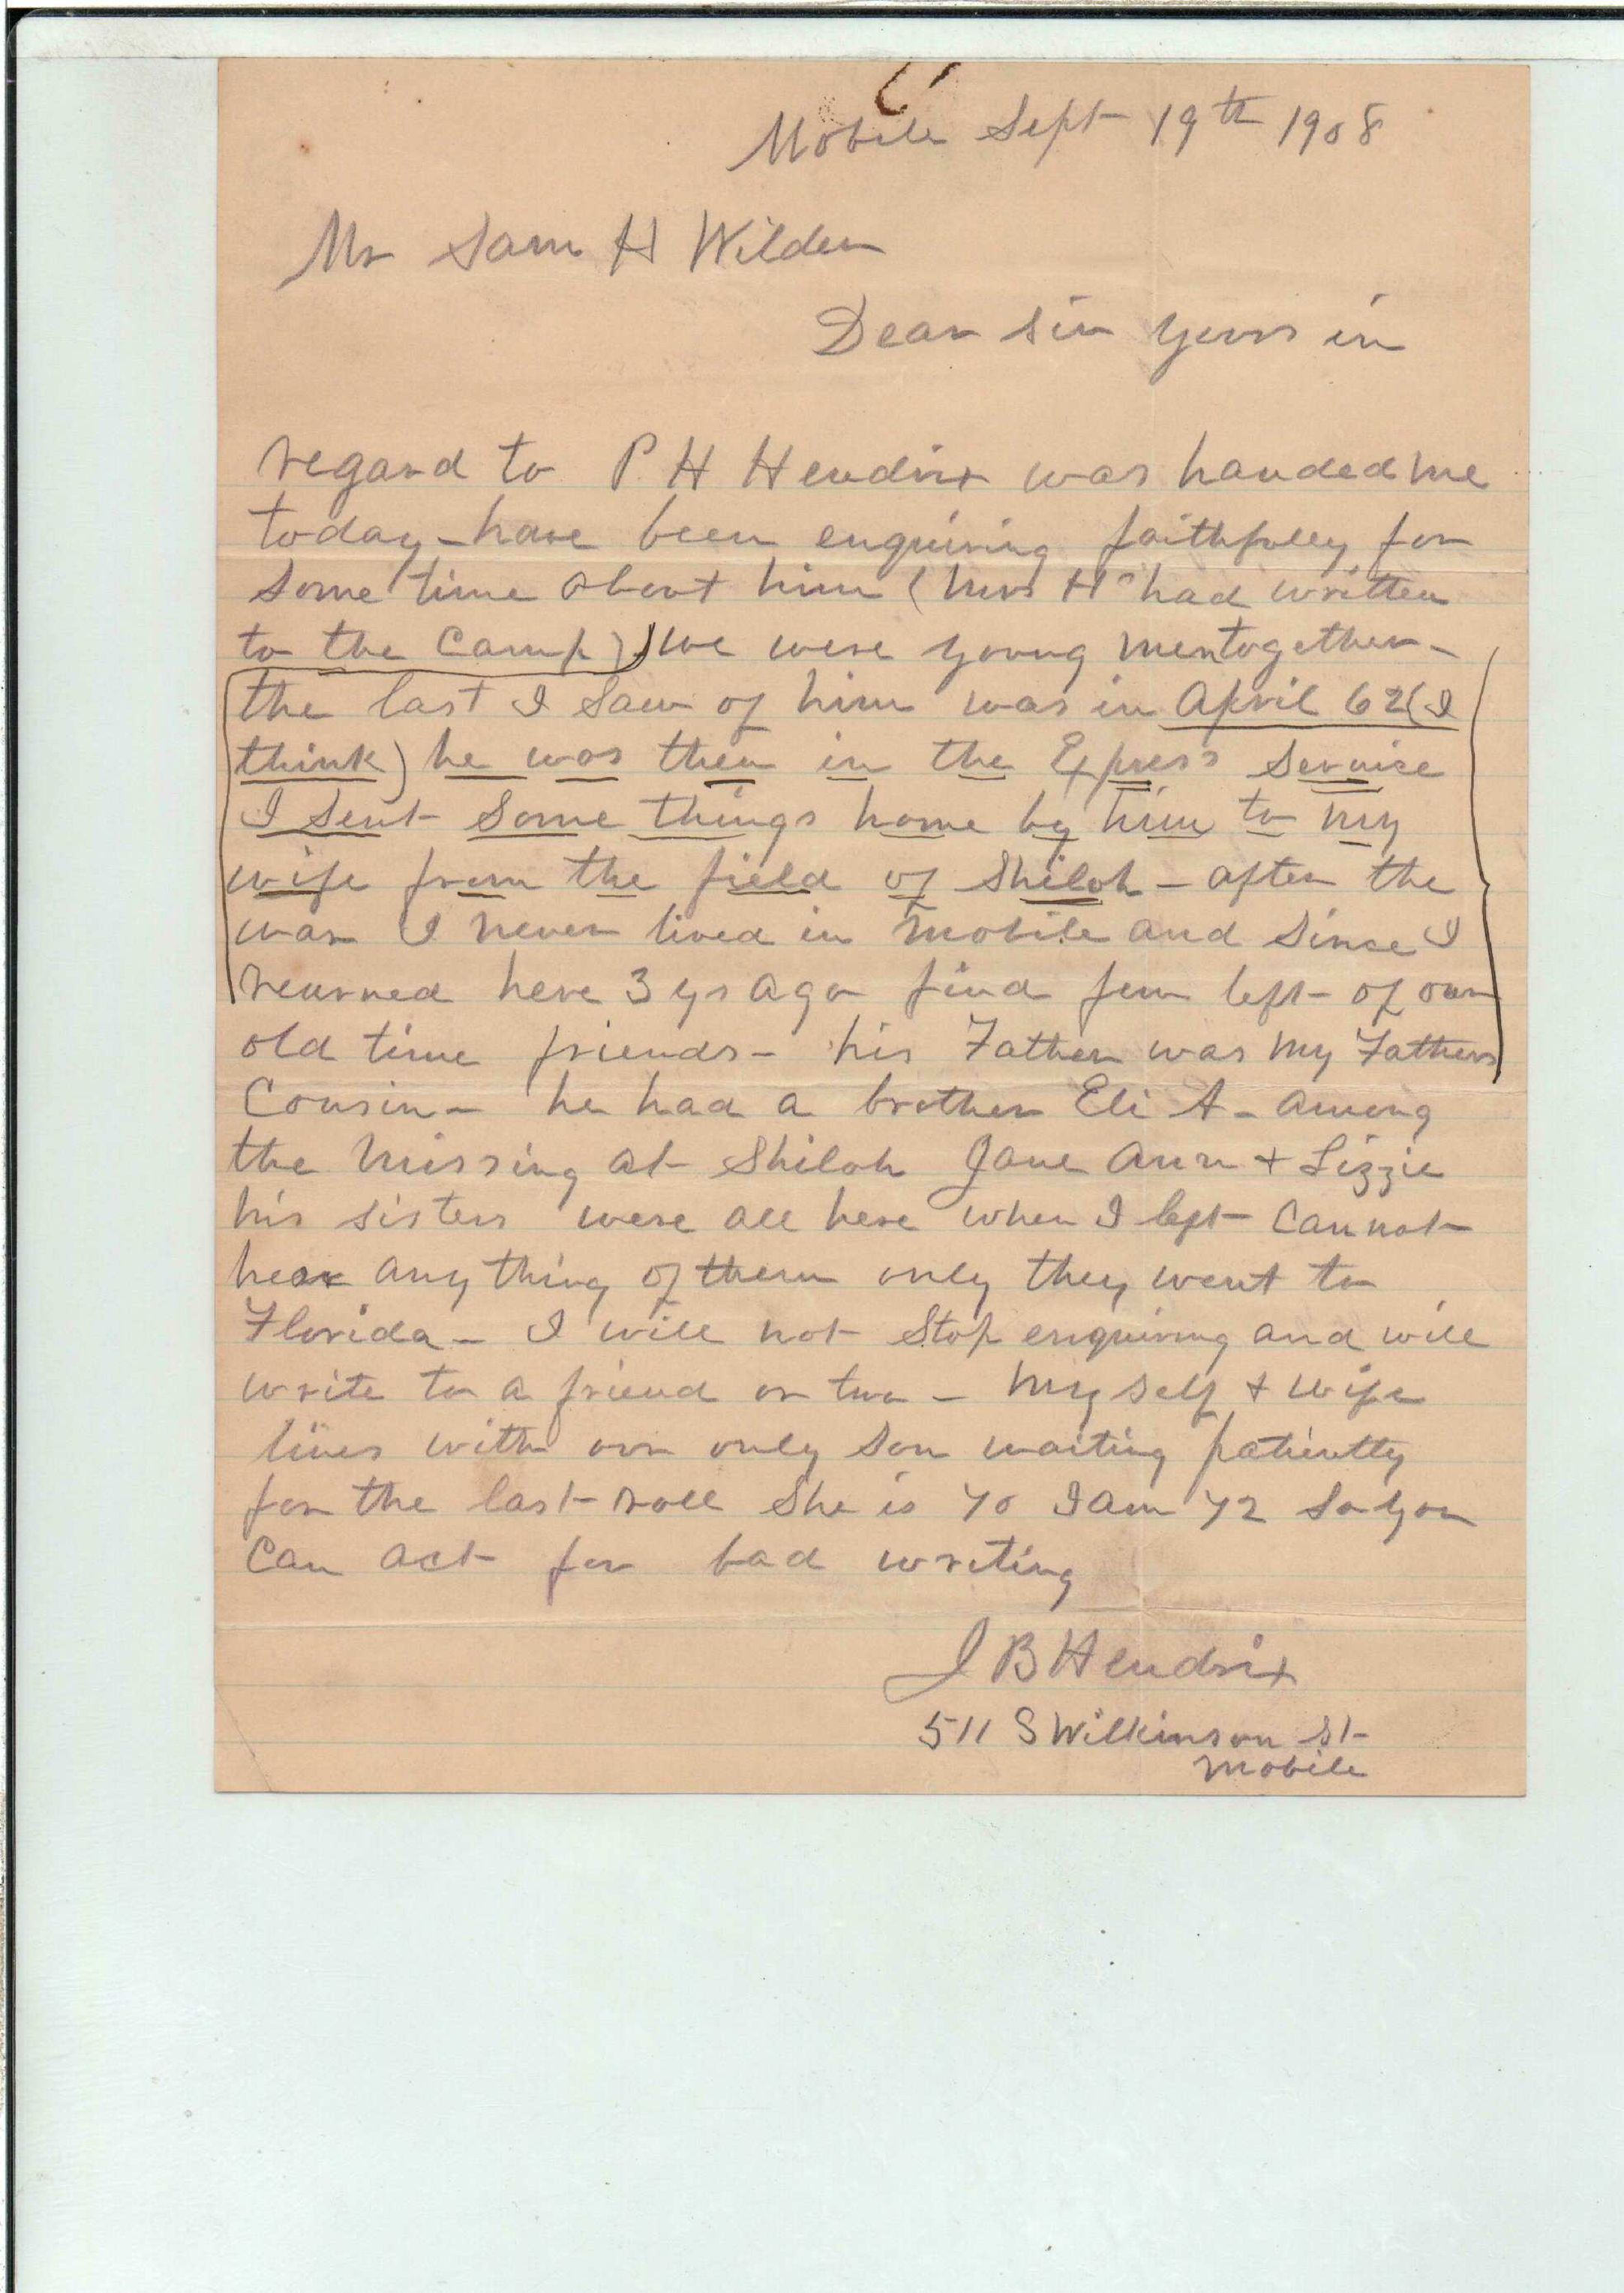 Mobile Sept 19th 1908
Mr Sam H Wilder
Dear sir yours in
regard to P. H Hendrix was handed me
today - have been enquiring faithfully for
some time about him (Mrs H had written
to the Camp) we were young men together -
the last I saw of him was in April 62 (I
think) he was then in the Express Service
I sent some things home by him to my
wife from the field of Shiloh - after the
war I never lived in Mobile and since I
reurned here 3 yrs ago find few left of our
old time friends - his Father was my Fathers
Cousin - he had a brother Eli A - among
the missing at Shiloh Jane Ann + Lizzie
his sisters were all here when I left Can not
hear any thing of them only they went to
Florida - I will not stop enquiring and will
write to a friend or two - my self + wife
lives with our only son waiting patiently
for the last roll She is 70 I am 72 so you
Can act for bad writing
J B Hendrix
511 S Wilkinson St
Mobile